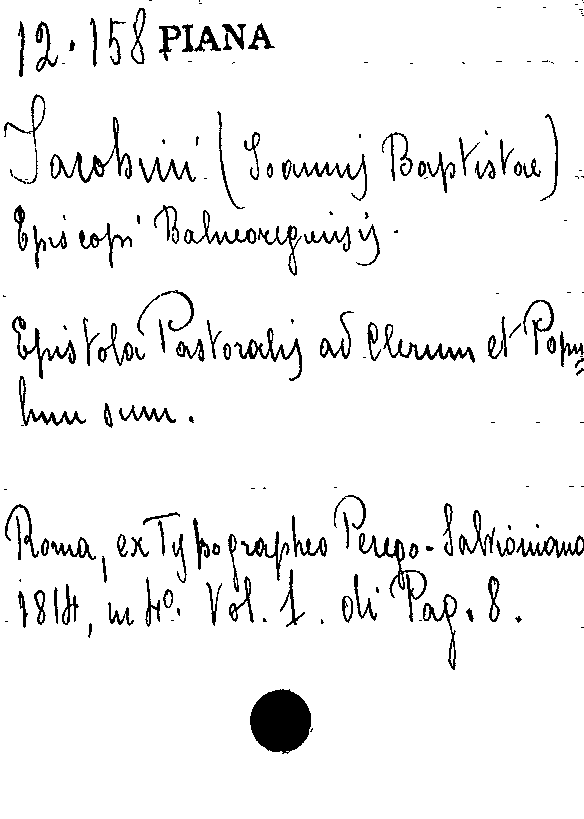 12.158 PIANA
Jacobini (Joannis Baptistae)
Episcopi Balneoregiensis.
Epistola Pastoralis ad Clerum et Popu=
lum suum.
Roma, ex Typographeo Perego-Salvioniano
1814, in 4º. Vol. 1. di Pag. 8.